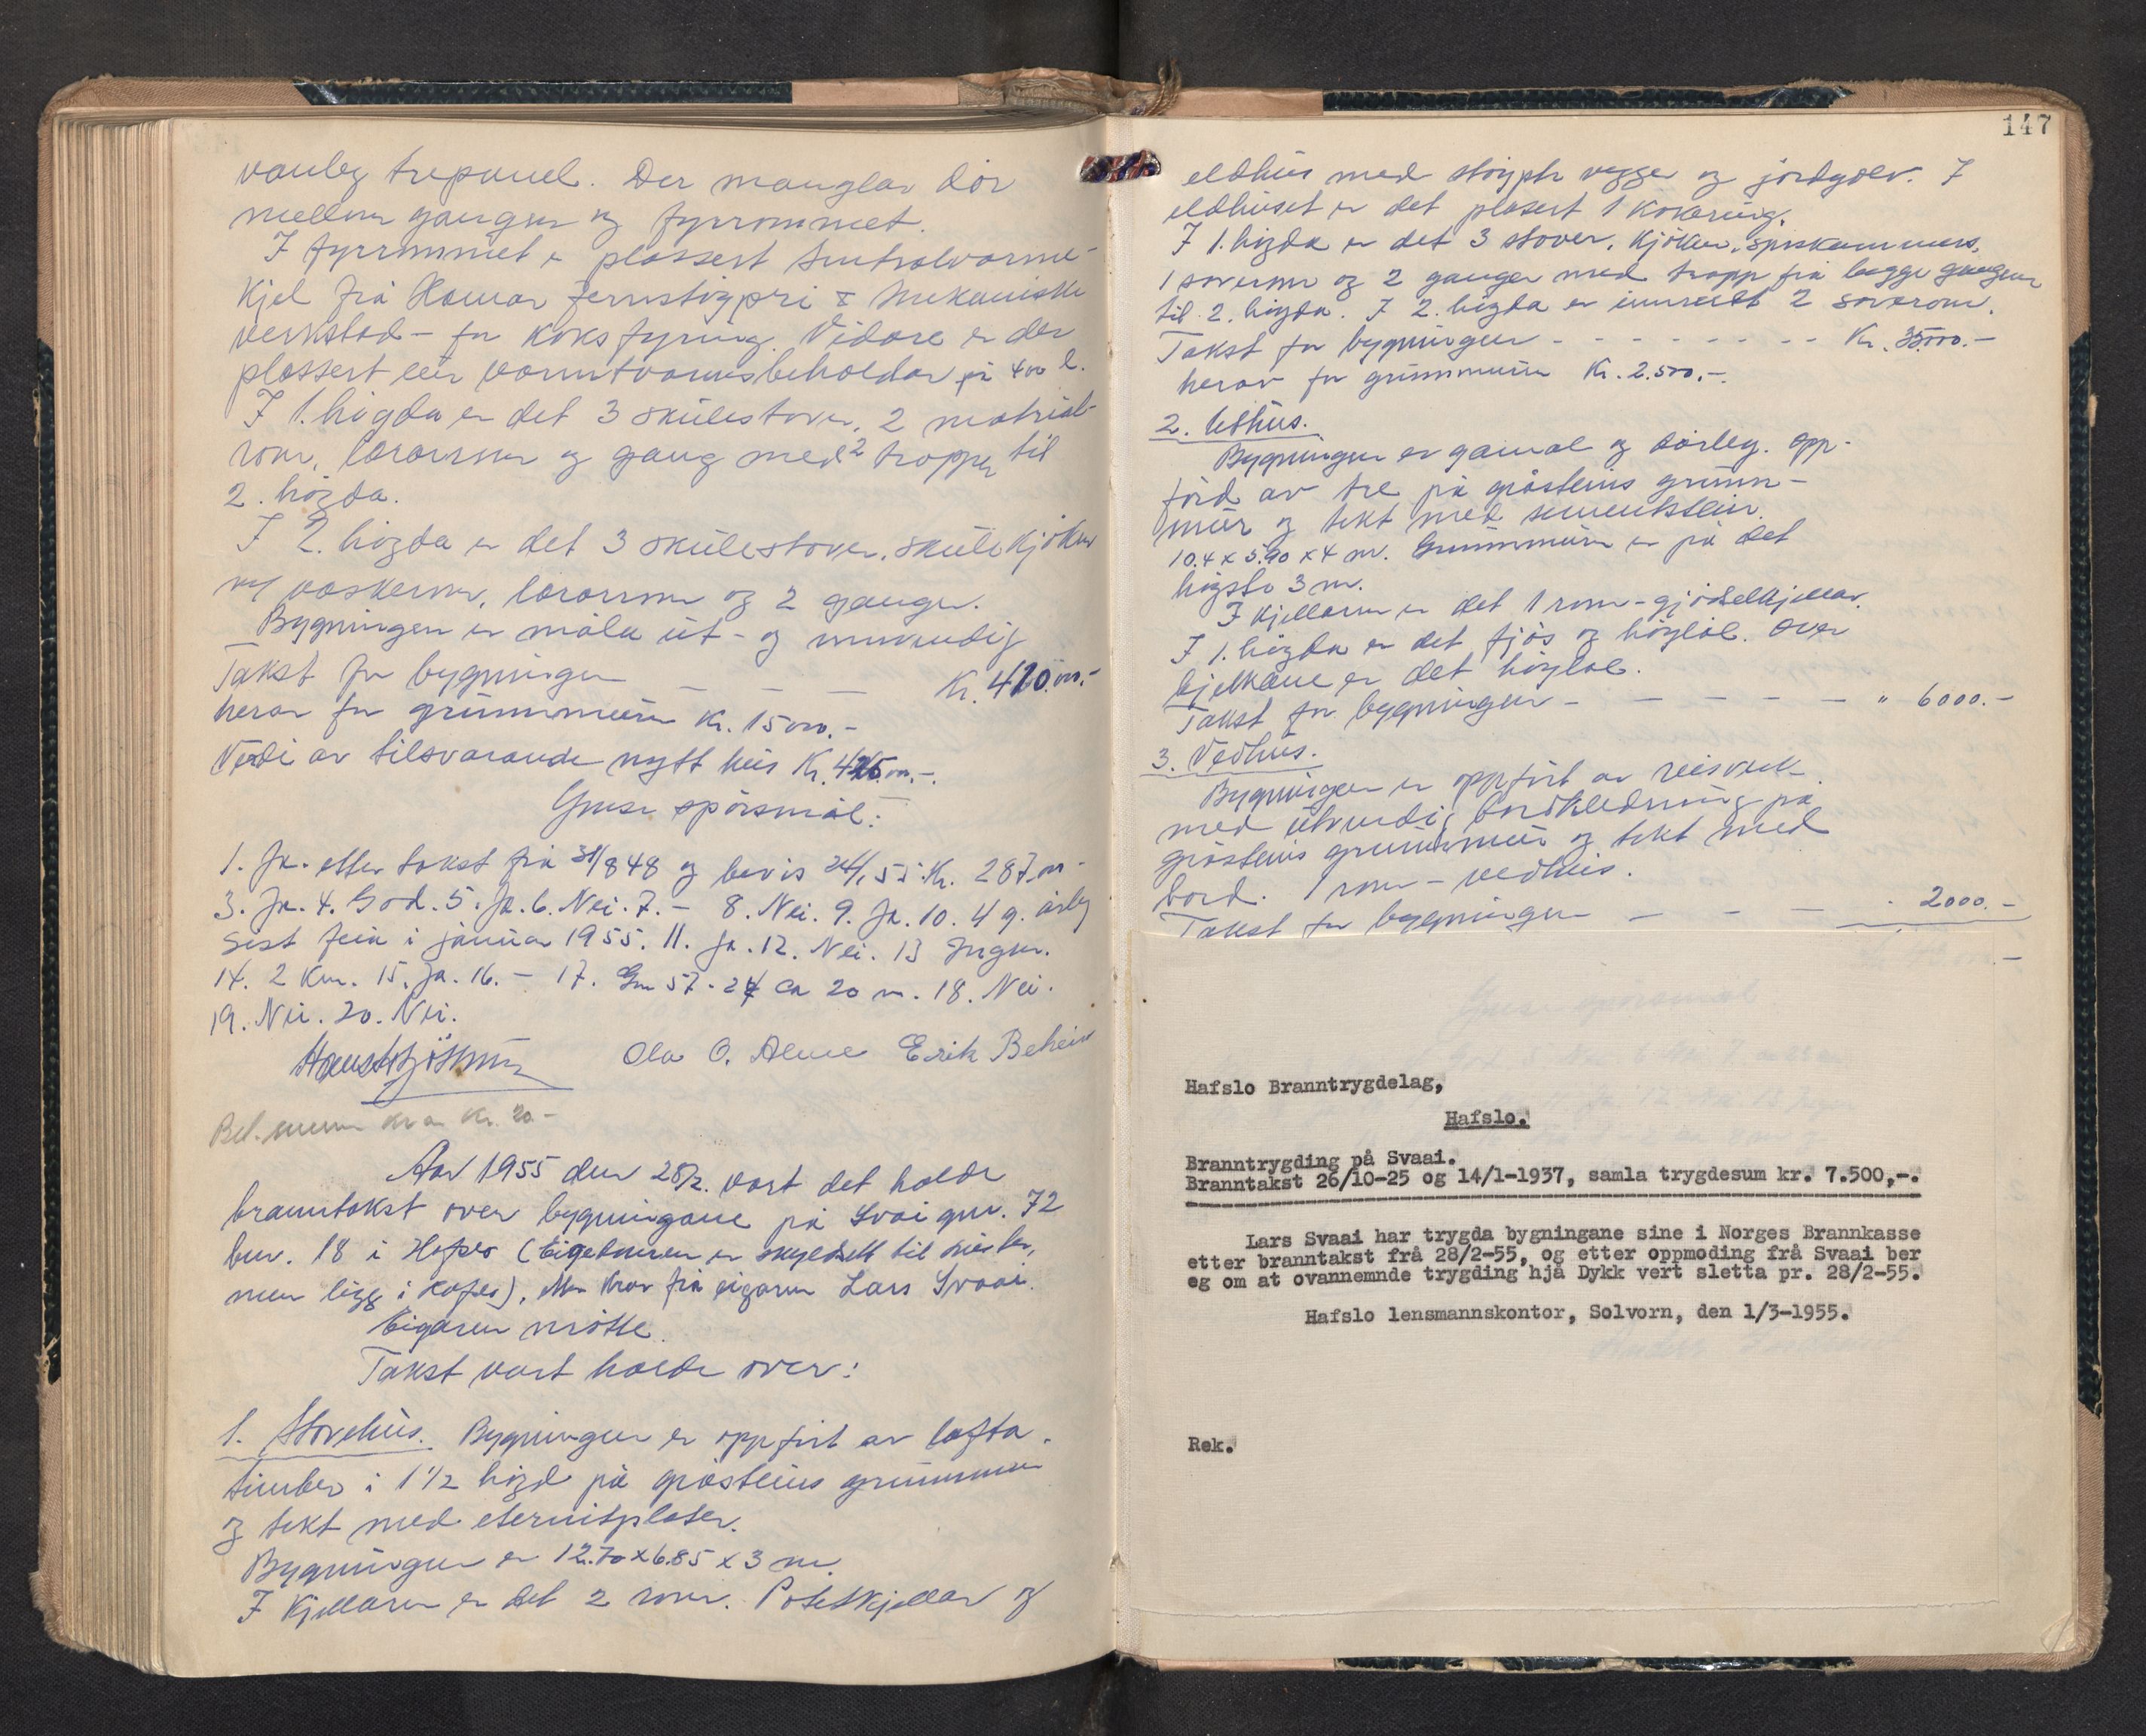 vanleg trepanel. Der manglar dör
mellom gangen og fyrrommet.
I fyrrommet er plassert sentralvarme-
kjel frå Hamar jernstöyperi & mekaniske
verkstad – for koksfyring. Vidare er der
plassert ein varmtvannsbeholdar på 400 l.
I 1. högda er det 3 skulestover, 2 material-
rom, lærarrom og gang med 2 tropper til
2. högda.
I 2. högda er det 3 skulestover, skulekjöken
m/ vaskerom, lærarrom og 2 ganger.
Bygningen er måla ut- og innvendig
Takst for bygningen — — — Kr. 410.000.-
herav for grunnmuren Kr. 15000.-
Verdi av tilsvarande nytt hus Kr. 425.000.-.
Ymse spörsmål:
1. Ja. etter takst frå 31/8 48 og bevis 24/1 55: Kr. 287.000
3. Ja. 4. God. 5. Ja. 6. Nei. 7. – 8. Nei. 9. Ja. 10. 4 g. årleg
Sist feia i januar 1955. 11. Ja. 12. Nei. 13 Ingen.
14. 2 km. 15. Ja. 16. – 17. Gnr 57. 24 ca 20 m. 18. Nei.
19. Nei. 20. Nei.
Ola O. Alme Erik Beheim
Kr. 20-
Aar 1955 den 28/2. vart det halde
branntakst over bygningane på Svai gnr. 72
bnr. 18 i Hafslo (Eigedomen er skyldsett til Luster,
men ligg i Hafslo), etter krav frå eigaren Lars Svaai.
Eigaren mötte.
Takst vart halde over:
1. Stovehus. Bygningen er oppfört av lafta
timber i 1 1/2 högd på gråsteins grunnmur
og tekt med eternitplater.
Bygningen er 12.70 x 6.85 x 3 m.
I kjellaren er det 2 rom. Potetkjellar og
147
eldhus med stöypte vegger og jordgolv. I
eldhuset er det plasert 1 kokering.
I 1. högda er det 3 stover, kjöken, spiskammers,
1 soverom og 2 ganger med tropp frå begge gangene
til 2. högda. I 2. högda er innreidt 2 soverom.
Takst for bygningen - - - - - - - - Kr. 35000.-
herav for grunnmuren Kr. 2.500,-.
2. Uthus.
Bygningen er gamal og dårleg. Opp-
förd av tre på gråsteins grunn-
mur og tekt med sementstein.
10.4 x 5.90 x 4 m. Grunnmuren er på det
högste 3 m.
I kjellaren er det 1 rom – gjödselkjellar.
I 1. högda er det fjös og höylöe. Over
bjelkane er det höyloe.
Takst for bygningen - — — — — — " 6000.-
3. Vedhus.
Bygningen er oppfört av reisverk
med utvendig bordkledning på
gråsteins grunnmur og tekt med
bord. 1 rom – vedhus.
Takst for bygningen — — — " 2000.-
Hafslo Branntrygdelag,
Hafslo.
Branntrygding på Svaai.
Branntakst 26/10-25 og 14/1-1937, samla trygdesum kr. 7.500,-.
Lars Svaai har trygda bygningane sine i Norges Brannkasse
etter branntakst frå 28/2-55, og etter oppmoding frå Svaai ber
eg om at ovannemnde trygding hjå Dykk vert sletta pr. 28/2-55.
Hafslo lensmannskontor, Solvorn, den 1/3-1955.
Rek.